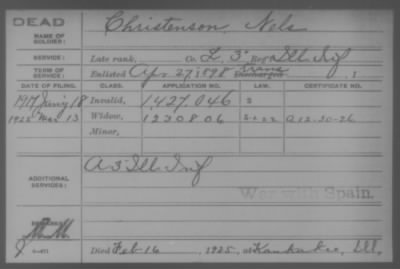 DEAD
Christenson, Nels
NAME OF SOLDIER:
SERVICE: Late rank, Co. L, 3" Reg Ill. Inf
TERM OF SERVICE: Enlisted Apr 27, 1898 Discharged , 1
DATE OF FILING. CLASS. APPLICATION NO. LAW. CERTIFICATE NO.
1919 18 Invalid, 1427.046
1925 Mar 13 Widow, 1230806 A 12-30-26
Minor,
ADDITIONAL SERVICES: Ill. Inf
War with Spain.
Died Feb 16, 1925, at Kankakee, Ill,